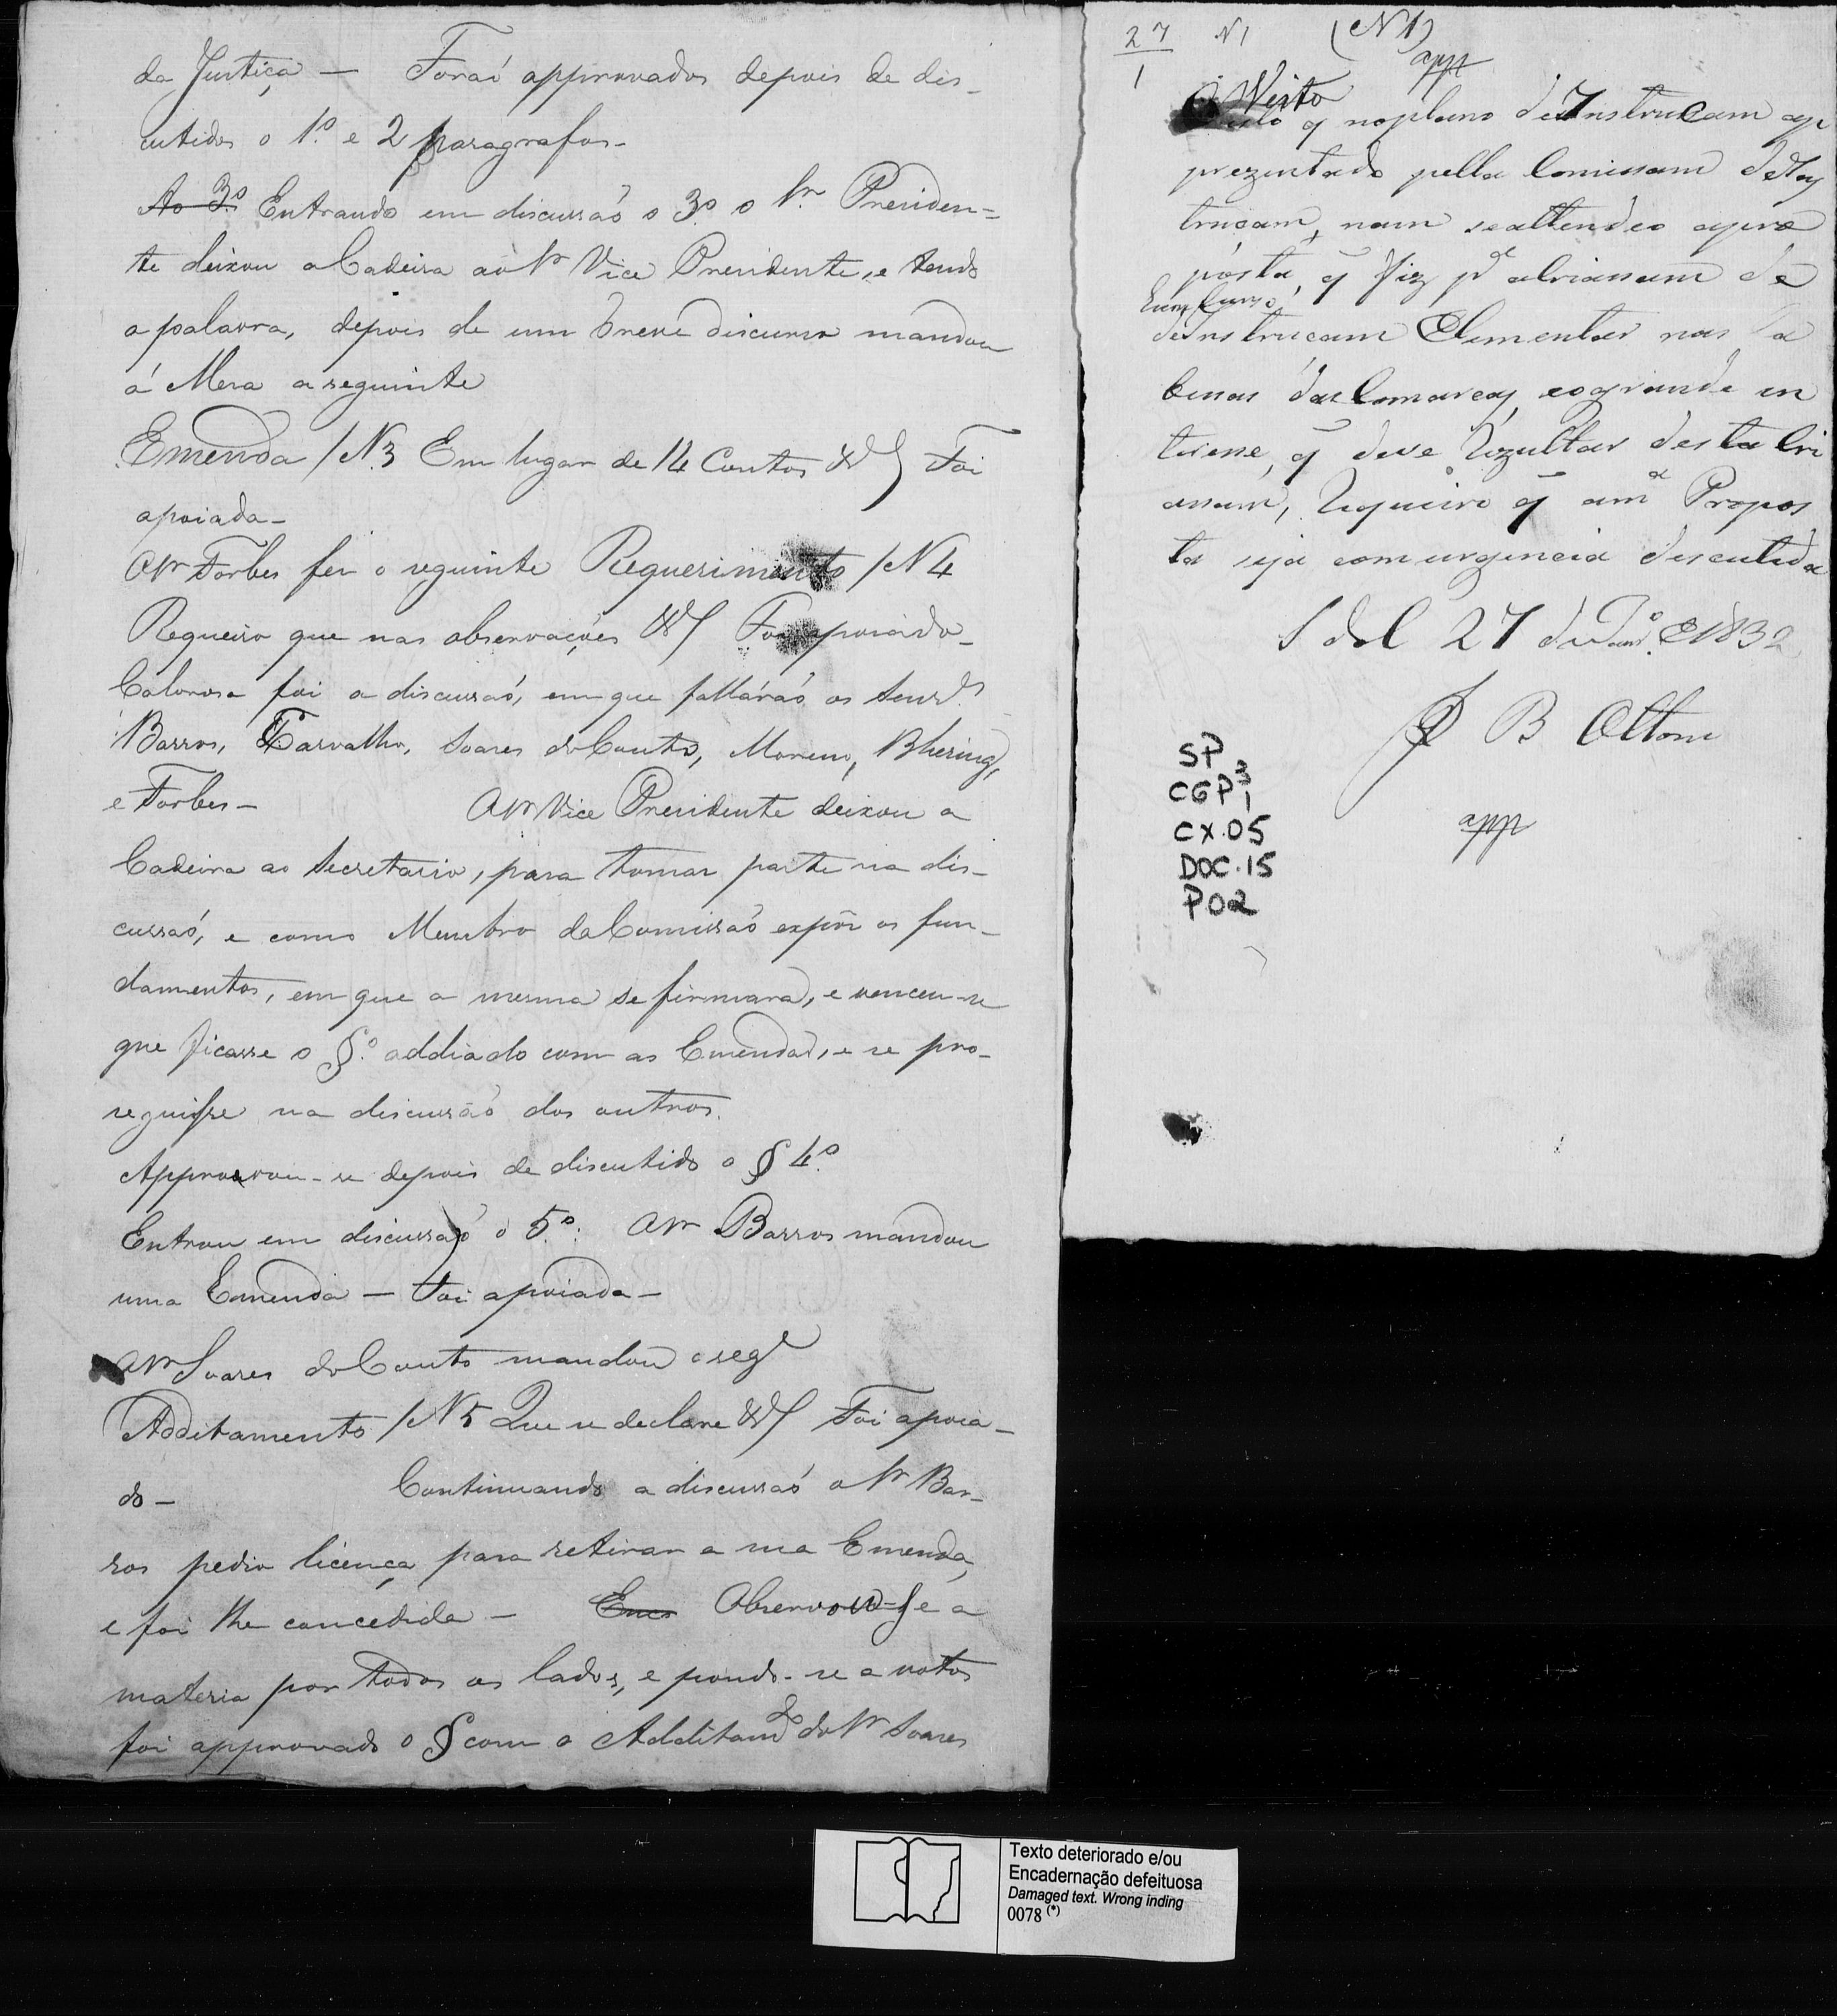 da Justiça — Foraó approvados depois de dis-
cutidos o 1.º e 2 paragrafos-
Ao 3.º Entrando em discussaõ o 3.º o Sr. Presiden=
te deixou a Cadeira ao Sr Vice Presidente, e tendo
a palavra, depois de um breve discurso mandou
á Mesa a seguinte
Emenda /N.3 Em lugar de 14 Contos &ª/ Foi
apoiada-
O Sr Forbes fez o seguinte Requerimento /N 4
Requeiro que nas observações &ª/ Foi apoiado-
Calorosa foi a discussaó, em que fallaráó os Senr.es
Barros, Carvalho, Soares do Couto, Moreno, Bhering,
e Forbes- O Sr Vice Presidente deixou a
Cadeira ao Secretario, para tomar parte na dis-
cussaó, e como Membro da Comissaõ expôz os fun-
damentos, em que a mesma se firmara, e venceu-se
que ficasse o §.º addiado com as Emendas, e se pro-
seguisse na discussaõ dos outros.
Approvou-se depois de discutido o § 4.º
Entrou em discussaó o 5.º: O Sr Barros mandou
uma Emenda — Foi apoiada—
O Sr Soares do Couto mandou o seg.e
Additamento /N 5 Que se declare &ª/ Foi apoia-
do- Continuando a discussaó o Sr Bar-
ros pedio licença para retirar a sua Emenda,
e foi lhe concedida - Observou-se a
materia por todos os lados, e pondo-se a votos
foi approvado o § com o Additam.to do Sr Soares
27 N1 (N 1)
1 app
Visto
q̃ no plano de Instrucam ap
prezentado pella Comissam de Ins
trucam, nam se attendeo a pro
posta, q̃ fiz p.ª a criassam de
hum Curso
de Instrucam Elementar nas Ca
beças das Comarcas, e o grande in
teresse, q̃ deve rezultar desta Cri
assam, Requeiro q̃ a m.ª Propos
ta seja com urgencia descutida
S do C 27 de Jan.º de 1832
J B Ottoni
app
SP
CGP 3
1
CX.05
DOC.15
P02
Texto deteriorado e/ou
Encadernação defeituosa
Damaged text. Wrong inding
0078 (*)